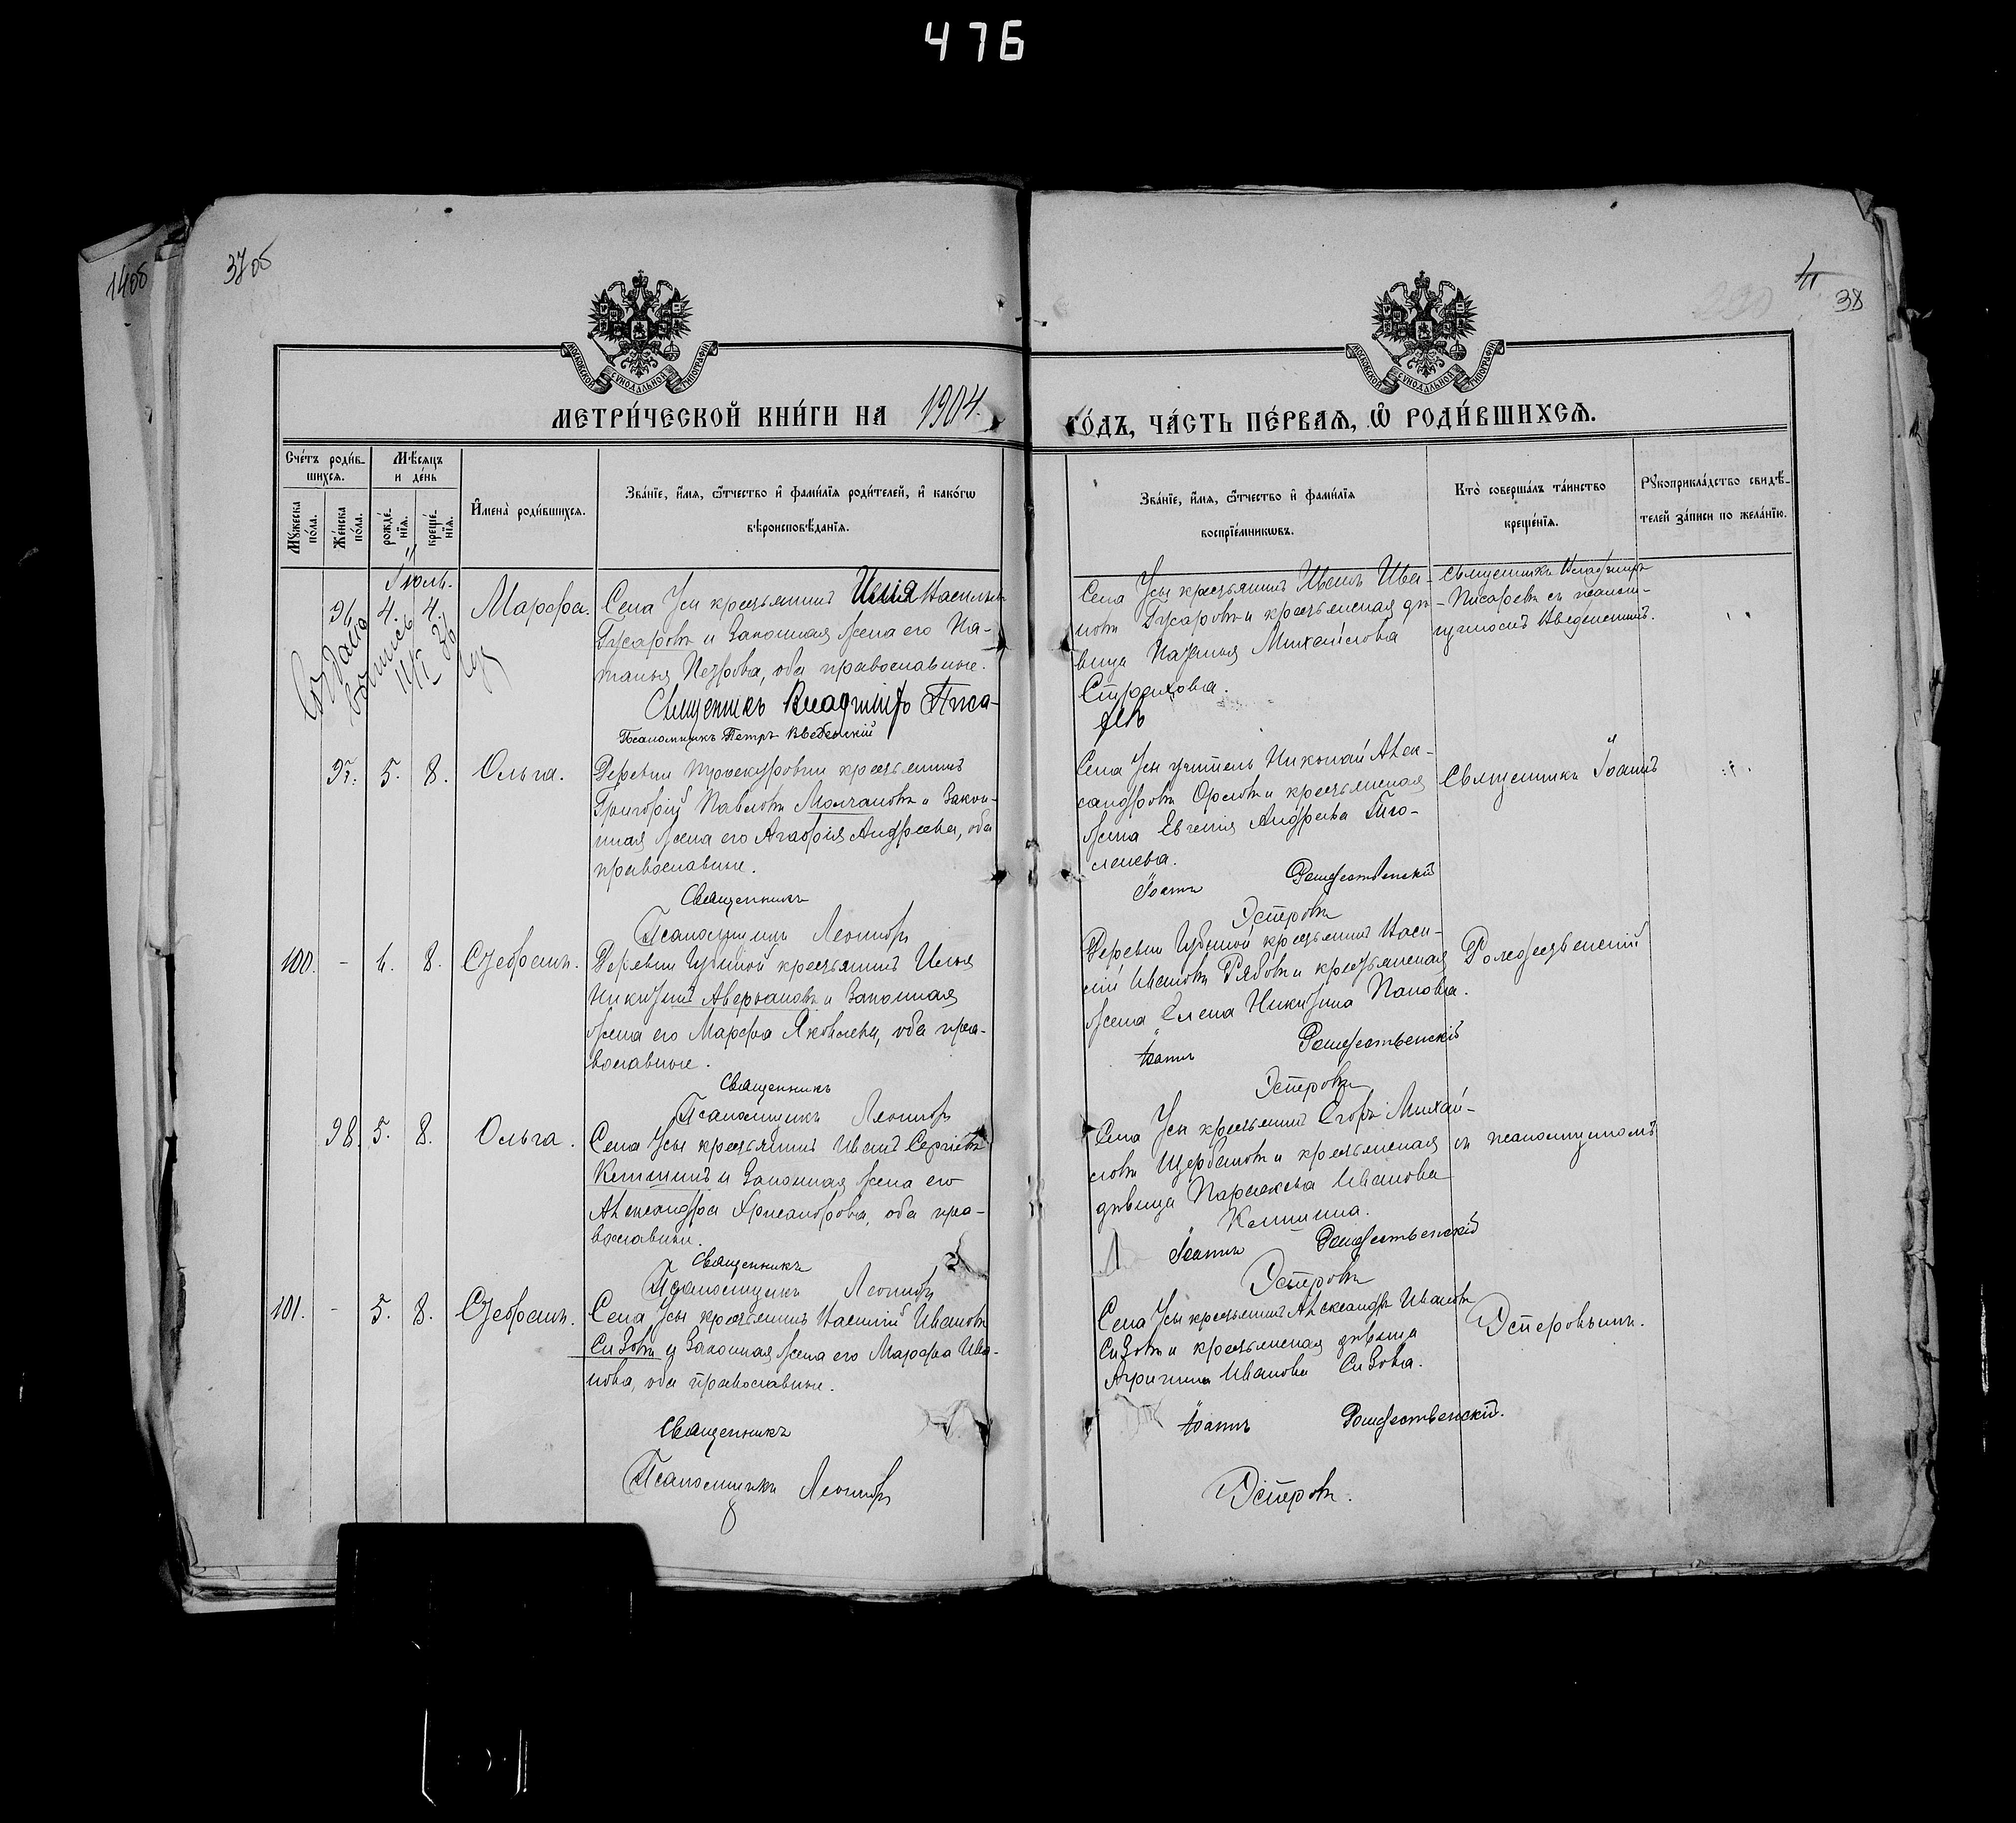 476
140б
37об
4
38
МОСКОВСКОЙ СѴНОДАЛЬНОЙ ТИПОГРАФІИ
МОСКОВСКОЙ СѴНОДАЛЬНОЙ ТИПОГРАФІИ
МЕТРИ́ЧЕСКОЙ КНИ́ГИ НА 1904.
ГО́ДЪ, ЧА́СТЬ ПЕ́РВАѦ, Ѿ РОДИ́ВШИХСѦ.
Сче́тъ роди́в-
шихсѧ.
Мѣ́сѧцъ
и де́нь
Мꙋ́жеска по́ла.
Же́нска по́ла.
рожде́-
нїѧ.
креще́-
нїѧ.
И҆мена̀ роди́вшихсѧ.
Зва́нїе, и҆́мѧ, ѻ҆́тчество и҆ фами́лїѧ роди́телей, и҆ како́гѡ
вѣроисповѣ́данїѧ.
Зва́нїе, и҆́мѧ, ѻ҆́тчество и҆ фами́лїѧ
воспрїе́мникѡвъ.
Кто̀ соверша́лъ та́инство
креще́нїѧ.
Рꙋкоприкла́дство свидѣ́-
телей за́писи по жела́нїю.
Іюль.
96. 4. 4. Марфа.
Села Усы крестьянинъ Илія Васильевъ
Гусаровъ и законная жена его На-
талья Петрова, оба православные.
Священникъ Владиміръ Писа-
Псаломщикъ Петръ Введенскій
Села Усы крестьянинъ Иванъ Ива-
новъ Гусаровъ и крестьянская дѣ-
вица Наталья Михайлова
Страхова.
ревъ
Священникъ Владиміръ
Писаревъ съ псалом-
щикомъ Введенскимъ.
97. 5. 8. Ольга.
Деревни Проскуровки крестьянинъ
Григорій Павловъ Молчановъ и закон-
ная жена его Агафія Андреева, оба
православные.
Священникъ
Псаломщикъ Леонидъ
Села Усы учитель Николай Алек-
сандровъ Орловъ и крестьянская
жена Евгенія Андреева
Іоаннъ Рождественскій
Эстеровъ
Священникъ Іоаннъ
100. - 6. 8. Стефанъ.
крестьянинъ Илья
Никитинъ Аверьяновъ и законная
жена его Марфа Яковлева, оба пра-
вославные.
Священникъ
Псаломщикъ Леонидъ
крестьянинъ Васи-
лій Ивановъ Рябовъ и крестьянская
жена Елена Никитина Панова.
Іоаннъ Рождественскій
Эстеровъ
Рождественскій
98. 5. 8. Ольга.
Села Усы крестьянинъ Иванъ Сергѣевъ
и законная жена его
Александра Хрисанфова, оба пра-
вославные.
Священникъ
Псаломщикъ Леонидъ
Села Усы крестьянинъ Егоръ Михай-
ловъ Щербаковъ и крестьянская
дѣвица Параскева Иванова
Іоаннъ Рождественскій
Эстеровъ
съ псаломщикомъ
101. - 5. 8. Стефанъ.
Села Усы крестьянинъ Василій Ивановъ
Сизовъ и законная жена его Марфа Ива-
нова, оба православные.
Священникъ
Псаломщикъ Леонидъ
Села Усы крестьянинъ Александръ Ивановъ
Сизовъ и крестьянская дѣвица
Агрипина Иванова Сизова.
Іоаннъ Рождественскій.
Эстеровъ.
Эстеровымъ.